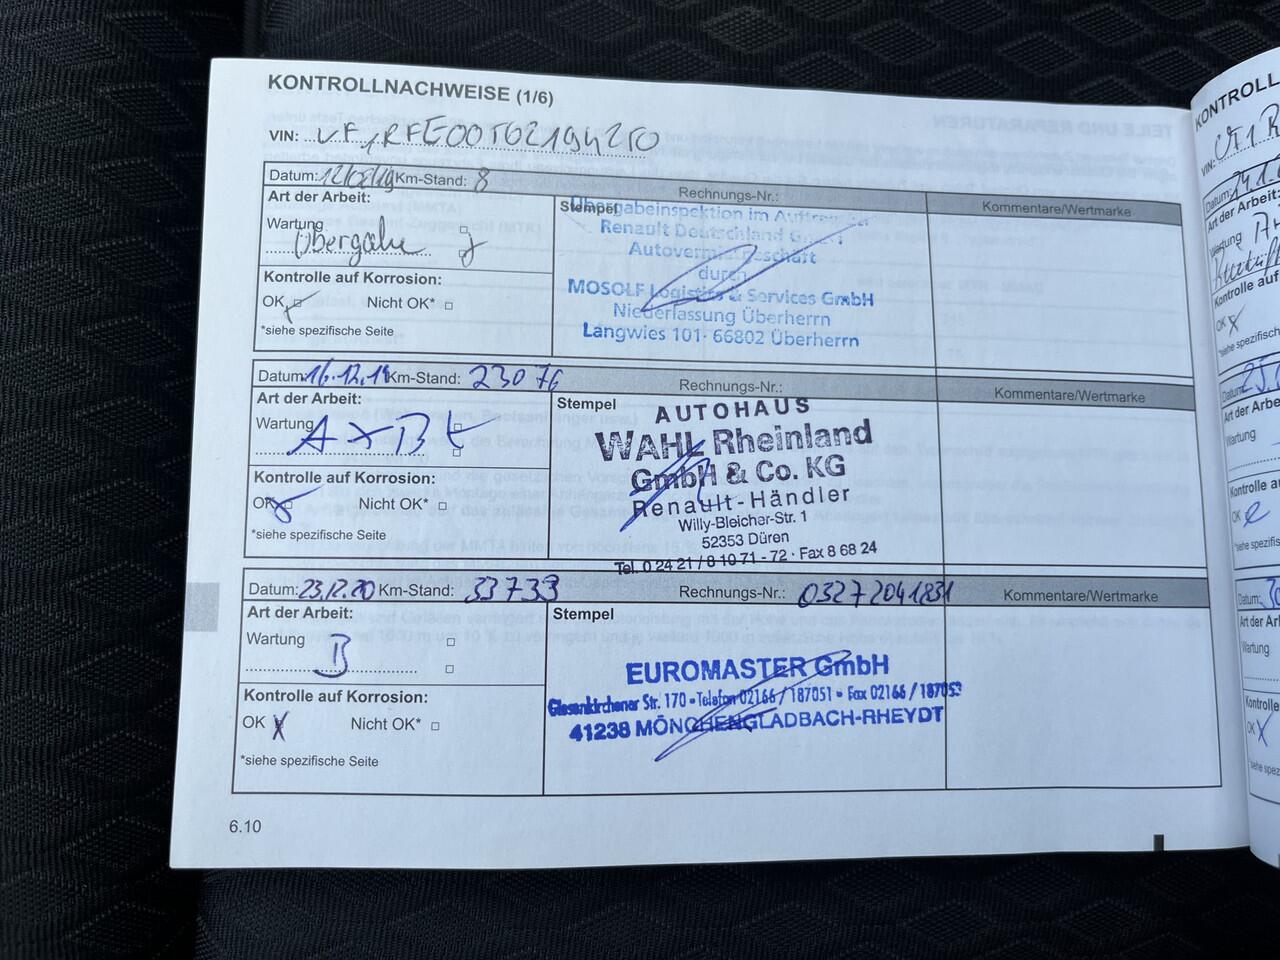 KONTROLLNACHWEISE (1/6)
VIN: VF1RFE00502194250
Datum: Km-Stand: 8 Rechnungs-Nr.: Kommentare/Wertmarke
Art der Arbeit:
Wartung
Übergabe
Kontrolle auf Korrosion:
OK Nicht OK*
*siehe spezifische Seite
Stempel
Übergabeinspektion im
Renault Deutschland
Autovermietgeschäft
durch
MOSOLF Logistics & Services GmbH
Niederlassung Überherrn
Langwies 101· 66802 Überherrn
Datum: 16.12.19 Km-Stand: 23076 Rechnungs-Nr.: Kommentare/Wertmarke
Art der Arbeit:
Wartung
A + B
Kontrolle auf Korrosion:
OK Nicht OK*
*siehe spezifische Seite
Stempel
AUTOHAUS
WAHL Rheinland
GmbH & Co. KG
Renault-Händler
Willy-Bleicher-Str. 1
52353 Düren
Tel. 0 24 21 / 8 10 71 - 72 · Fax 8 68 24
Datum: 23.12.20 Km-Stand: 33733 Rechnungs-Nr.: 03272041831 Kommentare/Wertmarke
Art der Arbeit:
Wartung
B
Kontrolle auf Korrosion:
OK X Nicht OK*
*siehe spezifische Seite
Stempel
EUROMASTER GmbH
Giesenkirchener Str. 170 • Telefon 02166 / 187051 • Fax 02166 / 187053
41238 MÖNCHENGLADBACH-RHEYDT
6.10
KONTROLL
VIN: VF1R
Datum:
Art der Arbeit:
Wartung
Kontrolle auf
OK X
*siehe spezifisch
Datum:
Art der Arbeit
Wartung
Kontrolle au
OK
*siehe spezifis
Datum:
Art der Ar
Wartung
Kontrolle
OK X
*siehe spez